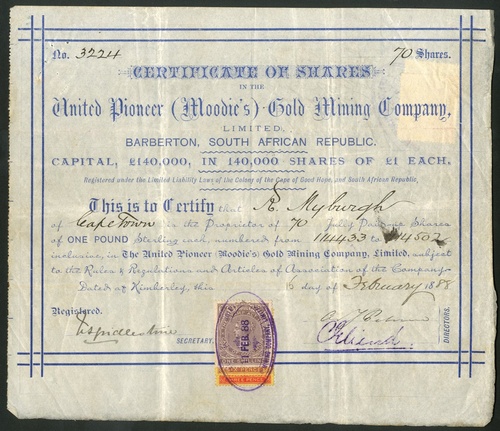 No. 3224 70 Shares.
CERTIFICATE OF SHARES
IN THE
United Pioneer (Moodie's) Gold Mining Company,
LIMITED,
BARBERTON, SOUTH AFRICAN REPUBLIC.
CAPITAL, £140,000, IN 140,000 SHARES OF £1 EACH.
Registered under the Limited Liability Laws of the Colony of the Cape of Good Hope, and South African Republic.
This is to Certify that R. Myburgh
of Cape Town is the Proprietor of 70 fully Paid up Shares
of ONE POUND Sterling each, numbered from 114433 to 114502
inclusive, in The United Pioneer (Moodie's) Gold Mining Company, Limited, subject
to the Rules & Regulations and Articles of Association of the Company.
Dated at Kimberley, this day of February 1888
Registered.
SECRETARY.
DIRECTORS.
FEB. 88
ONE SHILLING
SIX PENCE
THREE PENCE